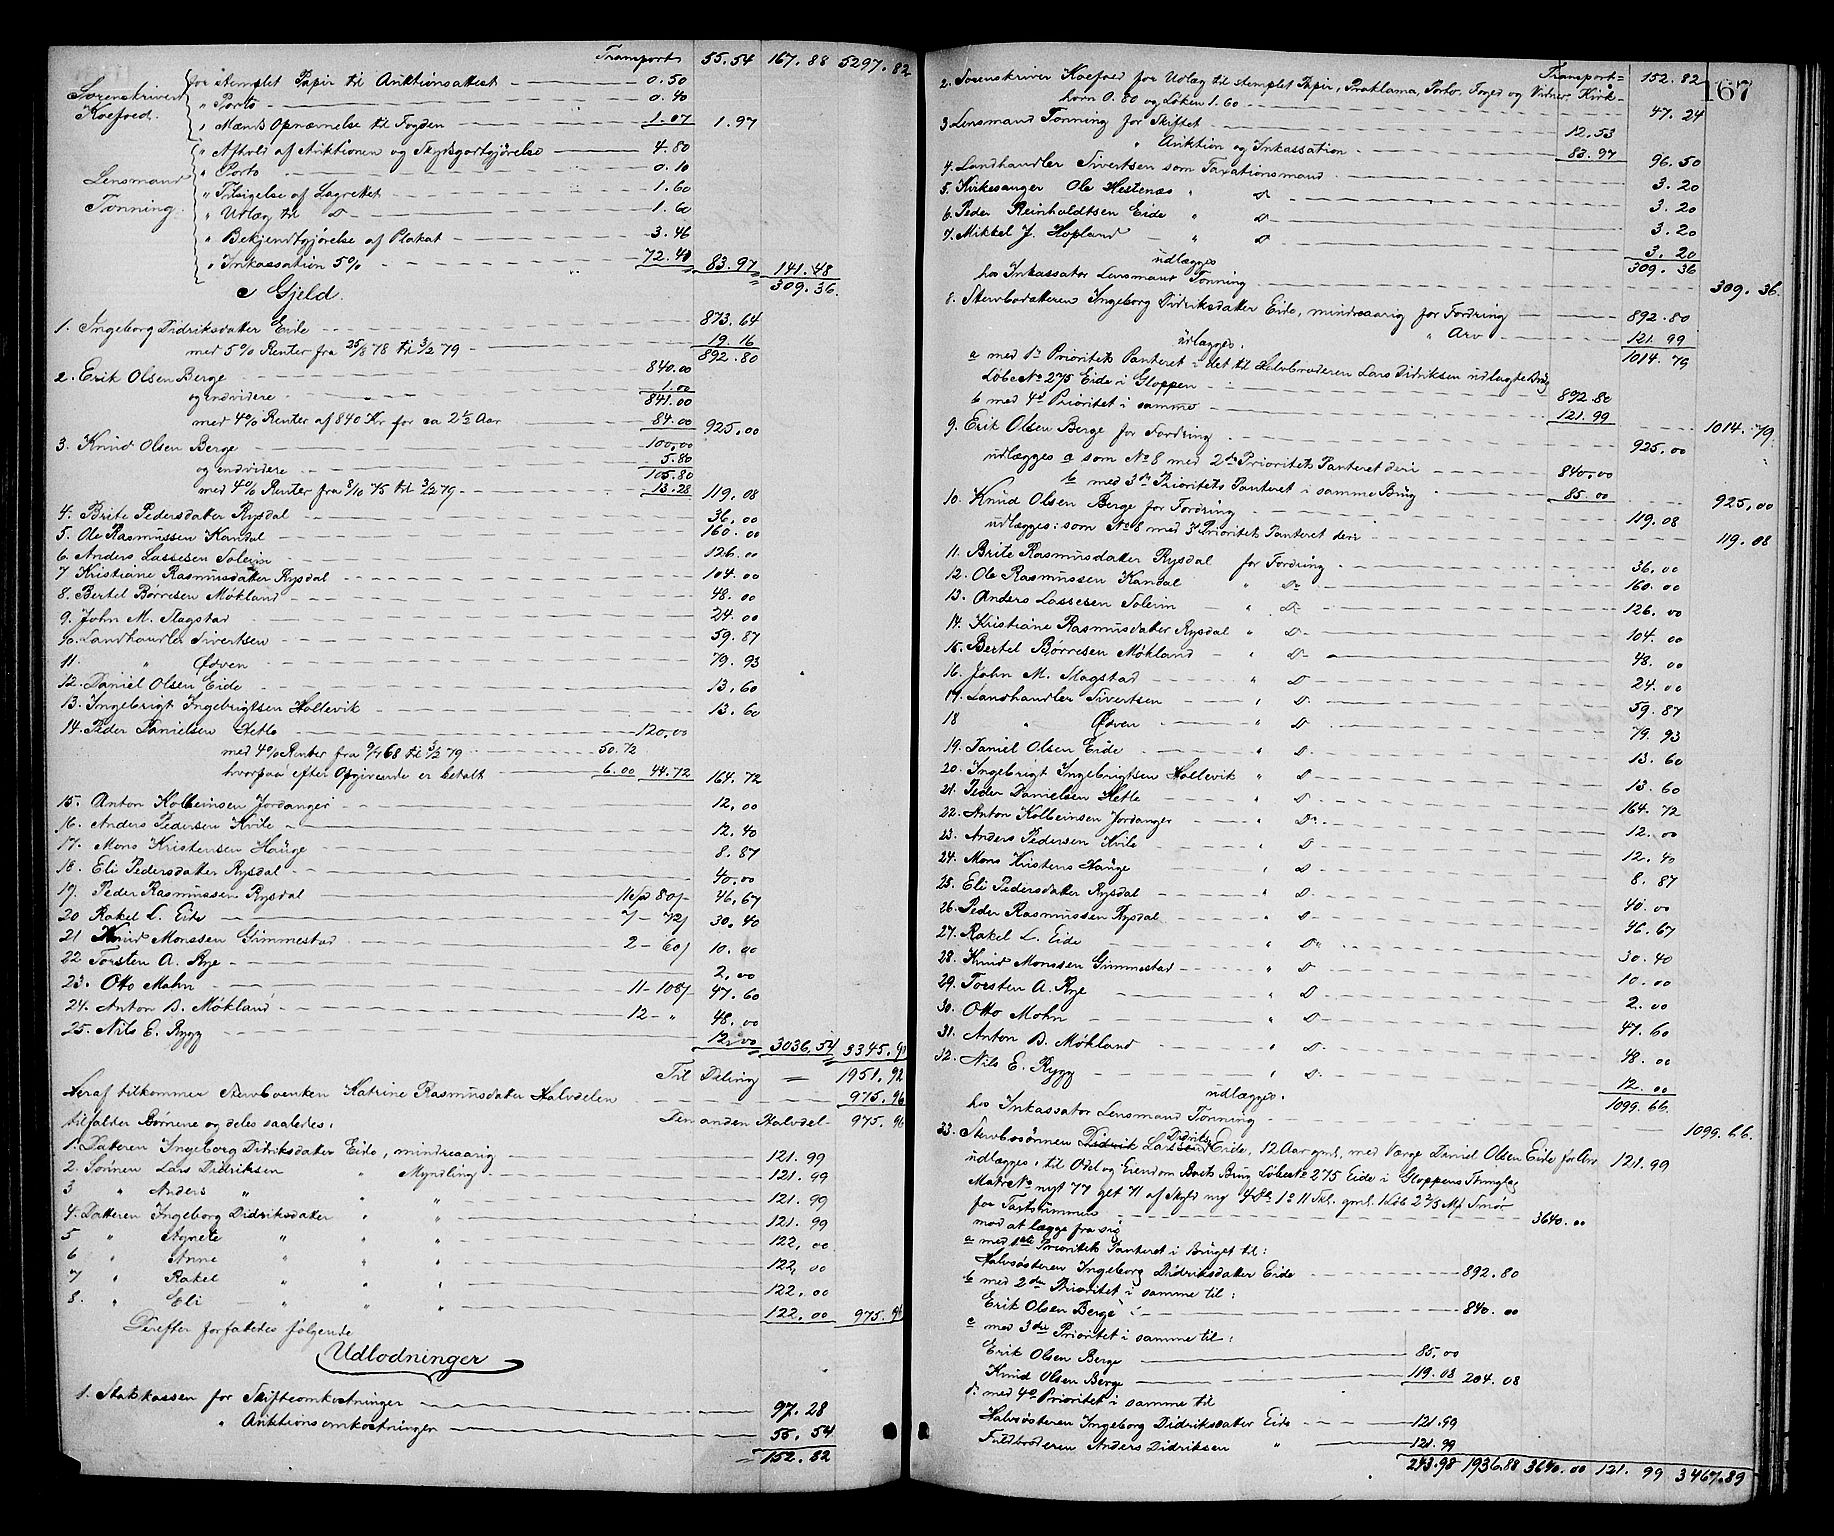 Transport 55.54 167.88 5297.82
Sorenskriver Koefoed. for stemplet Papir til Auktionsattest 0.50
" Porto 0.40
" Mænds Opnævnelse til Fogden 1.07 1.97
Lensmand Tonning " Afhold af Auktionen og Skydsgodtgjørelse 4.80
" Porto 0.10
" Tilsigelse af Lagrettet 1.60
" Udlæg til D- 1.60
" Bekjendtgjørelse af Plakat 3.46
" Inkassation 5% 72.41 83.97 141.48
309.36
c Gjeld.
1. Ingeborg Didriksdatter Eide 873.64
med 5% Renter fra 25/8 78 til 3/2 79 19.16
892.80
2. Erik Olsen Berge 840.00
og endvidere 1.00
841.00
med 4% Renter af 840 Kr for ca 2½ Aar 84.00 925.00
3. Knud Olsen Berge 100.00
og endvidere 5.80
105.80
med 4% Renter fra 8/10 75 til 3/2 79 13.28 119.08
4. Brite Pedersdatter Rysdal 36.00
5. Ole Rasmussen Kandal 160.00
6. Anders Lassesen Soleim 126.00
7 Kristiane Rasmusdatter Rysdal 104.00
8. Bertel Børresen Møkland 48.00
9. John M. Slagstad 24.00
10. Landhandler Sivertsen 59.87
11. " Ødven 79.93
12. Daniel Olsen Eide 13.60
13. Ingebrigt Ingebrigtsen Hollevik 13.60
14. Peder Danielsen Hetle 120.00
med 4% Renter fra 9/7 68 til 3/2 79 50.72
hvorpaa efter Opgivende er betalt 6.00 44.72 164.72
15. Anton Kolbeinsen Jordanger 12.00
16. Anders Pedersen Kvile 12.40
17. Mons Kristensen Hauge 8.87
18. Eli Pedersdatter Rysdal 40.00
19. Peder Rasmussen Rysdal 46.67
20 Rakel L. Eide 30.40
21 Knud Monssen Gimmestad 10.00
22 Torsten A. Rye 2.00
23. Otto Mohn 47.60
24. Anton B. Møkland 48.00
25. Nils E. Rygg 12.00 3036.54 3345.90
Til Deling = 1951.92
Heraf tilkommer Stervboenken Katrine Rasmusdatter Halvdelen 975.96
Den anden Halvdel 975.96
tilfalder Børnene og deles saaledes:
1. Datteren Ingeborg Didriksdatter Eide, mindreaarig 121.99
2. Sønnen Lars Didriksen " Myndling 121.99
3 " Anders " " " 121.99
4. Datteren Ingeborg Didriksdatter " " 121.99
5 " Agnete " " " 122.00
6 " Anne " " " 122.00
7 " Rakel " " " 122.00
8. " Eli " " " 122.00 975.96
Derefter forfattedes følgende
Udlodninger
1. Statskassen for Skifteomkostninger 97.28
" Auktionsomkostninger 55.54
= 152.82
167
Transport= 152.82
2. Sorenskriver Koefoed for Udlæg til stemplet Papir, Proklama, Porto, Foged og Vidner, Kirk-
horn 0.80 og Løken 1.60 47.24
3 Lensmand Tonning for Skiftet 12.53
" Auktion og Inkassation 83.97 96.50
4. Landhandler Sivertsen som Taxationsmand 3.20
5. Kirkesanger Ole Hestenæs " D 3.20
6. Peder Reinholdtsen Eide " D 3.20
7. Mikkel J. Hopland " D 3.20
udlægges 309.36
hos Inkassator Lensmand Tonning 309.36.
8. Stervbodatteren Ingeborg Didriksdatter Eide, mindreaarig for Fordring 892.80
" Arv 121.99
udlægges. 1014.79
a med 1ste Prioritets Panteret i det til Halvbroderen Lars Didriksen udlagte Brug
Løbe No 275 Eide i Gloppen 892.80
b med 4de Prioritet i samme 121.99
1014.79
9. Erik Olsen Berge for Fordring 925.00
udlægges a som No 8 med 2den Prioritets Panteret deri 840.00
b med 3die Prioritets Panteret i samme Brug 85.00
925.00
10. Knud Olsen Berge for Fordring 119.08
udlægges: som No 8 med 3d Prioritet Panteret deri 119.08
11. Brite Rasmusdatter Rysdal for Fordring 36.00
12. Ole Rasmussen Kandal " D 160.00
13. Anders Lassesen Soleim " D 126.00
14. Kristiane Rasmusdatter Rysdal " D 104.00
15. Bertel Børresen Møkland " D 48.00
16. John M. Slagstad " D 24.00
17. Landhandler Sivertsen " D 59.87
18 " Ødven " D 79.93
19. Daniel Olsen Eide " D 13.60
20. Ingebrigt Ingebrigtsen Hollevik " D 13.60
21. Peder Danielsen Hetle " D 164.72
22. Anton Kolbeinsen Jordanger " D 12.00
23. Anders Pedersen Kvile " D 12.40
24. Mons Kristens Hauge " D 8.87
25. Eli Pedersdatter Rysdal " D 40.00
26. Peder Rasmussen Rysdal " D 46.67
27. Rakel L. Eide " D 30.40
28. Knud Monssen Gimmestad " D 10.00
29. Torsten A. Rye " D 2.00
30. Otto Mohn " D 47.60
31. Anton B. Møkland " D 48.00
32. Nils E. Rygg " D 12.00
udlægges. 1099.66
hos Inkassator Lensmand Tonning 1099.66.
33. Stervbosønnen Didrik Lars Didriksen Eide, 12 Aar gml. med Værge Daniel Olsen Eide for Arv 121.99
udlægges, til Odel og Eiendom Boets Brug Løbeno 275 Eide i Gloppens Thinglag
Matr No nyt 77 gl 71 af Skyld ny 4 Dl. 1 o 11 Skl. gml. 1 Løb 2 2/5 Mk Smør
for Taxtsummen 3640.00
mod at lægge fra sig
a med 1ste Prioritets Panteret i Bruget til:
Halvsøsteren Ingeborg Didriksdatter Eide 892.80
b med 2den Prioritet i samme til:
Erik Olsen Berge 840.00
c med 3die Prioritet i samme til:
Erik Olsen Berge 85.00
Knud Olsen Berge 119.08 204.08
d. med 4de Prioritet i samme til
Halvsøsteren Ingeborg Didriksdatter Eide 121.99
Fuldbroderen Anders Didriksen " 121.99
243.98 1936.88 3640.00 121.99 3467.89